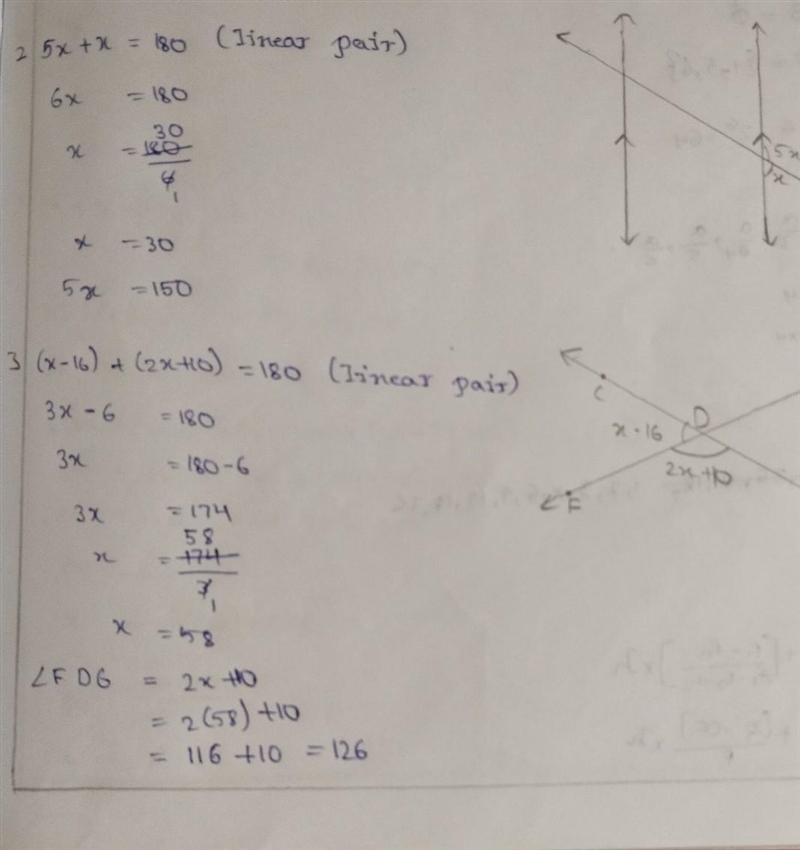 2 5x + x = 180 (linear pair)
6x = 180
x = 180/6 30 1
x = 30
5x = 150
5x
x
3 (x-16) + (2x+10) = 180 (linear pair)
3x - 6 = 180
3x = 180-6
3x = 174
x = 174/3 58 1
x = 58
∠FDG = 2x+10
= 2(58)+10
= 116+10 = 126
C
D
x-16
2x+10
F